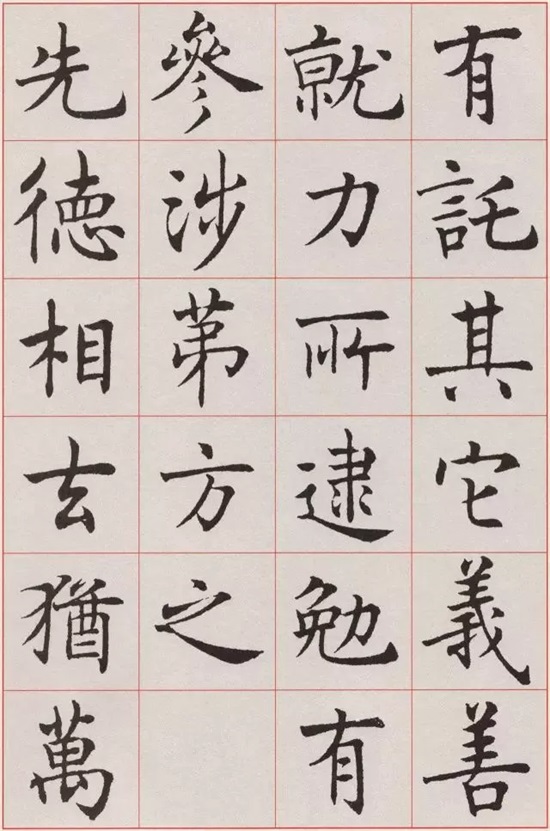 有託其它義善
就力所逮勉有
參涉第方之
先德相去猶萬